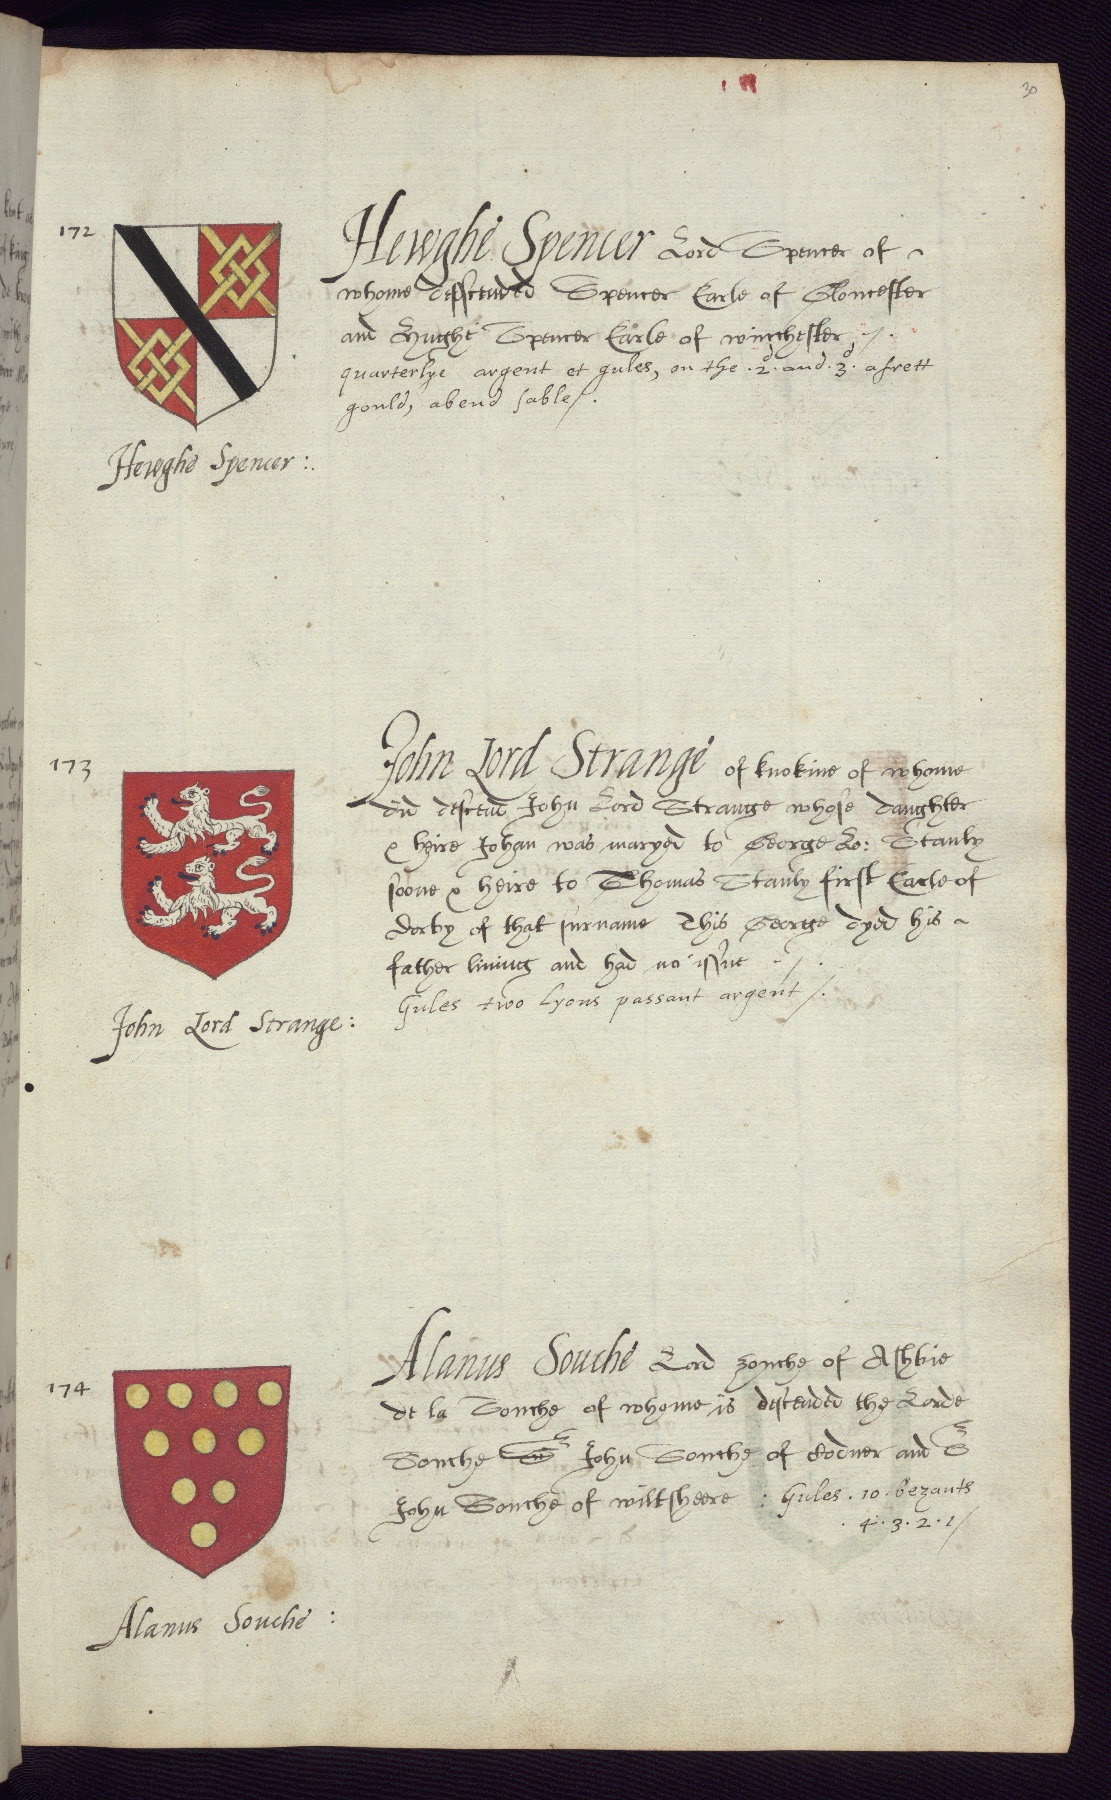 30
172
Hewghe Spencer Lord Spencer of
whome desscended Spencer Earle of Gloucester
and Hughe Spencer Earle of winchester
quarterlye argent et gules, on the .2d. and .3d. a frett
gould, a bend sable/.
Hewghe Spencer :.
173
John Lord Strange of knokine of whome
did descend John Lord Strange whose daughter
& heire Johan was maryed to George Lo: Stanly
soone & heire to Thomas Stanly first Earle of
Darby of that surname This George dyed his
father living and had no issue
Gules two lyons passant argent/.
John Lord Strange :
174
Alanus Souche Lord zouche of Ashbie
de la Souche of whome is descended the Lorde
Souche Sr John Souche of Codner and Sr
John Souche of wiltsheere : Gules . 10 . bezants
. 4 . 3 . 2 . 1/
Alanus Souche :